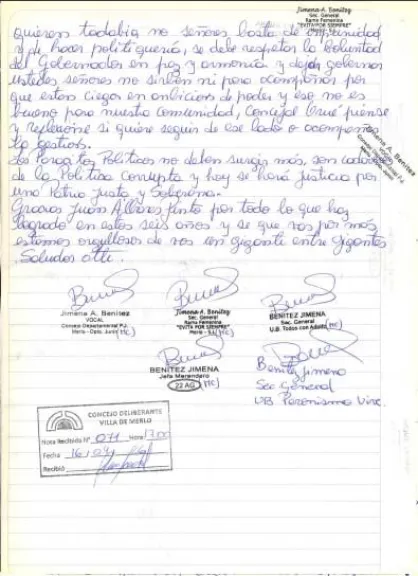 Jimena A. Benitez
Sec. General
Rama Femenina
"EVITA POR SIEMPRE"
quieren todabia no señores basta de
y de hacer politiqueria, se debe respetar la voluntad
del Gobernador en paz y armonia y dejar gobernar
ustedes señores no sirben ni para acompañar por
que estan ciegos en anbiciones de poder y eso no es
bueno para nuestra comunidad, Concejal piense
y reflexione si quiere seguir de ese lado o acompañar
la gestion.
Los Politicos no deben surgir mas, son
de la Politica Corrupta y hoy se hará Justicia por
una Patria Justa y Soberana.
Gracias Juan Pinto por todo lo que has
logrado en estos seis años y se que vas por más
estamos orgullosos de vos un gigante entre gigantes
Saludos atte.
Jimena A. Benitez
VOCAL
Consejo Departamental P.J.
Merlo - Dpto. Junín
Jimena A. Benitez
Sec. General
Rama Femenina
"EVITA POR SIEMPRE"
Merlo - S.L.
BENITEZ JIMENA
Sec. General
U.B. Todos con Adolfo
BENITEZ JIMENA
Jefa Merendero
22 AG.
Benitez Jimena
Sec General
UB Peronismo
CONCEJO DELIBERANTE
VILLA DE MERLO
Nota Recibida N° 071 Hora 13:00
Fecha 16/04/
Recibió